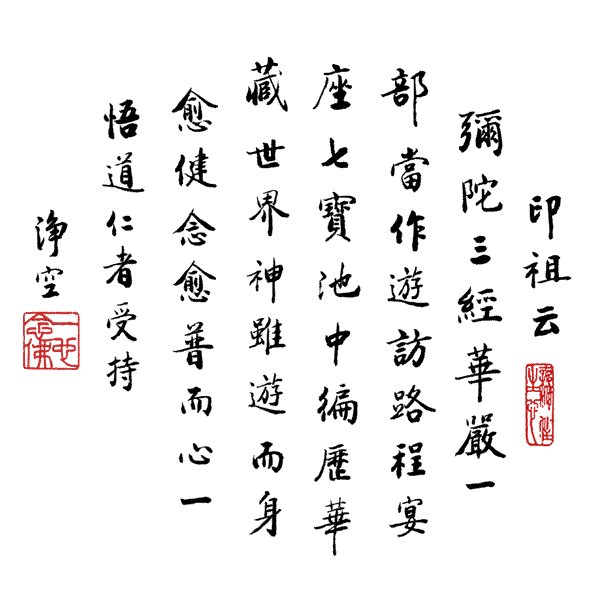 印祖云
彌陀三經華嚴一
部當作遊訪路程宴
座七寶池中徧歷華
藏世界神雖遊而身
愈健念愈普而心一
悟道仁者受持
淨空
一心念佛